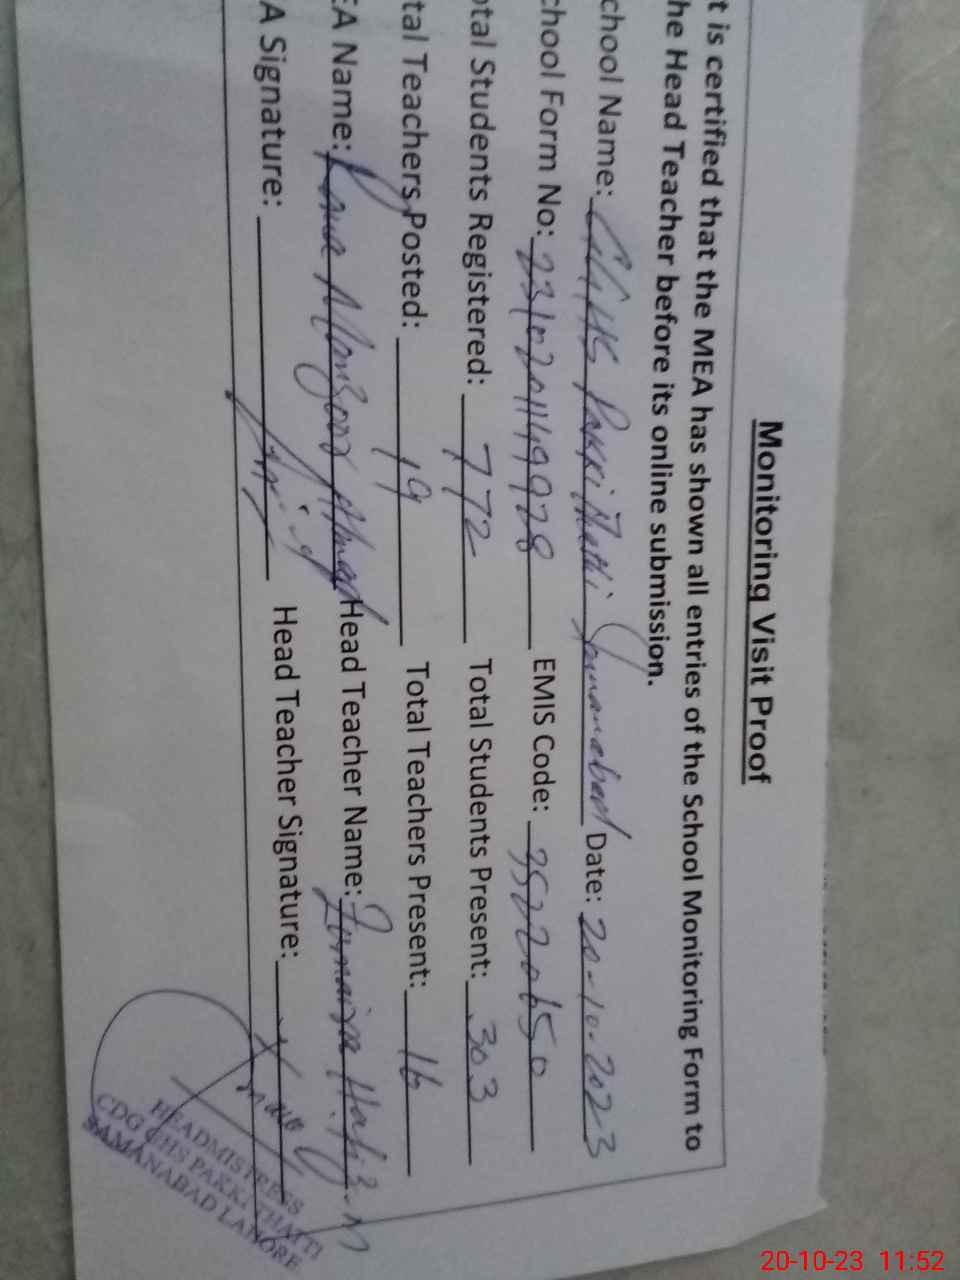 Monitoring Visit Proof
t is certified that the MEA has shown all entries of the School Monitoring Form to
he Head Teacher before its online submission.
chool Name: Pakki Thatti Samanabad Date: 20-10-2023
chool Form No: EMIS Code: 35220650
otal Students Registered: 772 Total Students Present: 303
tal Teachers Posted: 19 Total Teachers Present: 16
EA Name: Rana Manzoor Ahmad Head Teacher Name: Zumaira Hafiz
A Signature: Head Teacher Signature:
HEADMISTRESS
CDG GHS PAKKI THATTI
SAMANABAD LAHORE
20-10-23 11:52